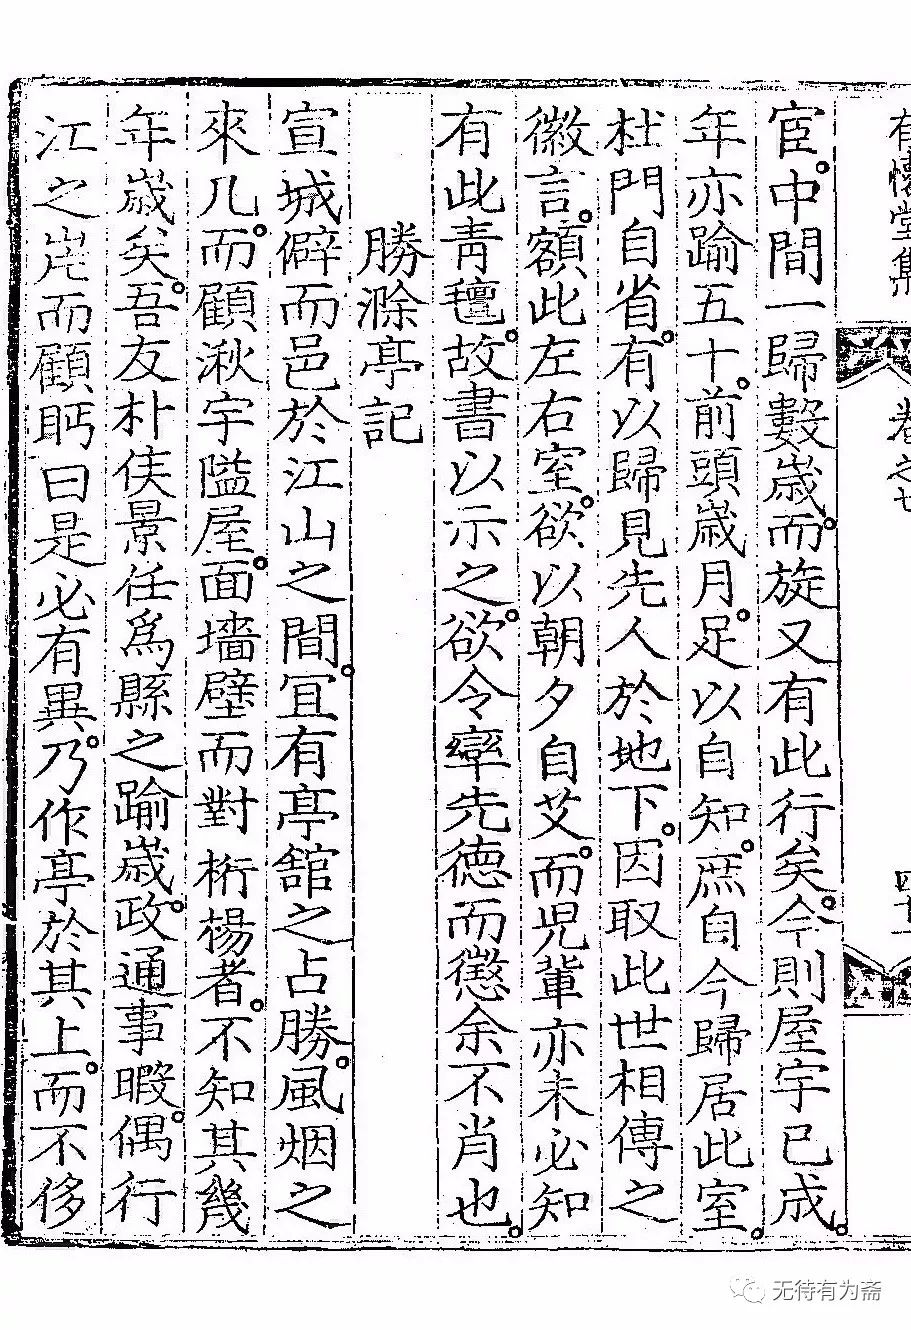 有懷堂集　卷之七　四十
宦。中間一歸數歲。而旋又有此行矣。今則屋宇已成。
年亦踰五十。前頭歲月。足以自知。庶自今歸居此室。
杜門自省。有以歸見先人於地下。因取此世相傳之
徽言。額此左右室。欲以朝夕自艾。而児軰亦未必知
有此靑氊。故書以示之。欲令率先德而懲余不肖也。
勝滁亭記
宣城僻而邑於江山之間。冝有亭舘之占勝。風烟之
來几。而顧湫宇隘屋。面墻壁而對桁楊者。不知其幾
年歲矣。吾友朴侯景任爲縣之踰歲。政通事暇。偶行
江之岸而顧眄曰是必有異。乃作亭於其上。而不侈
无待有为斋